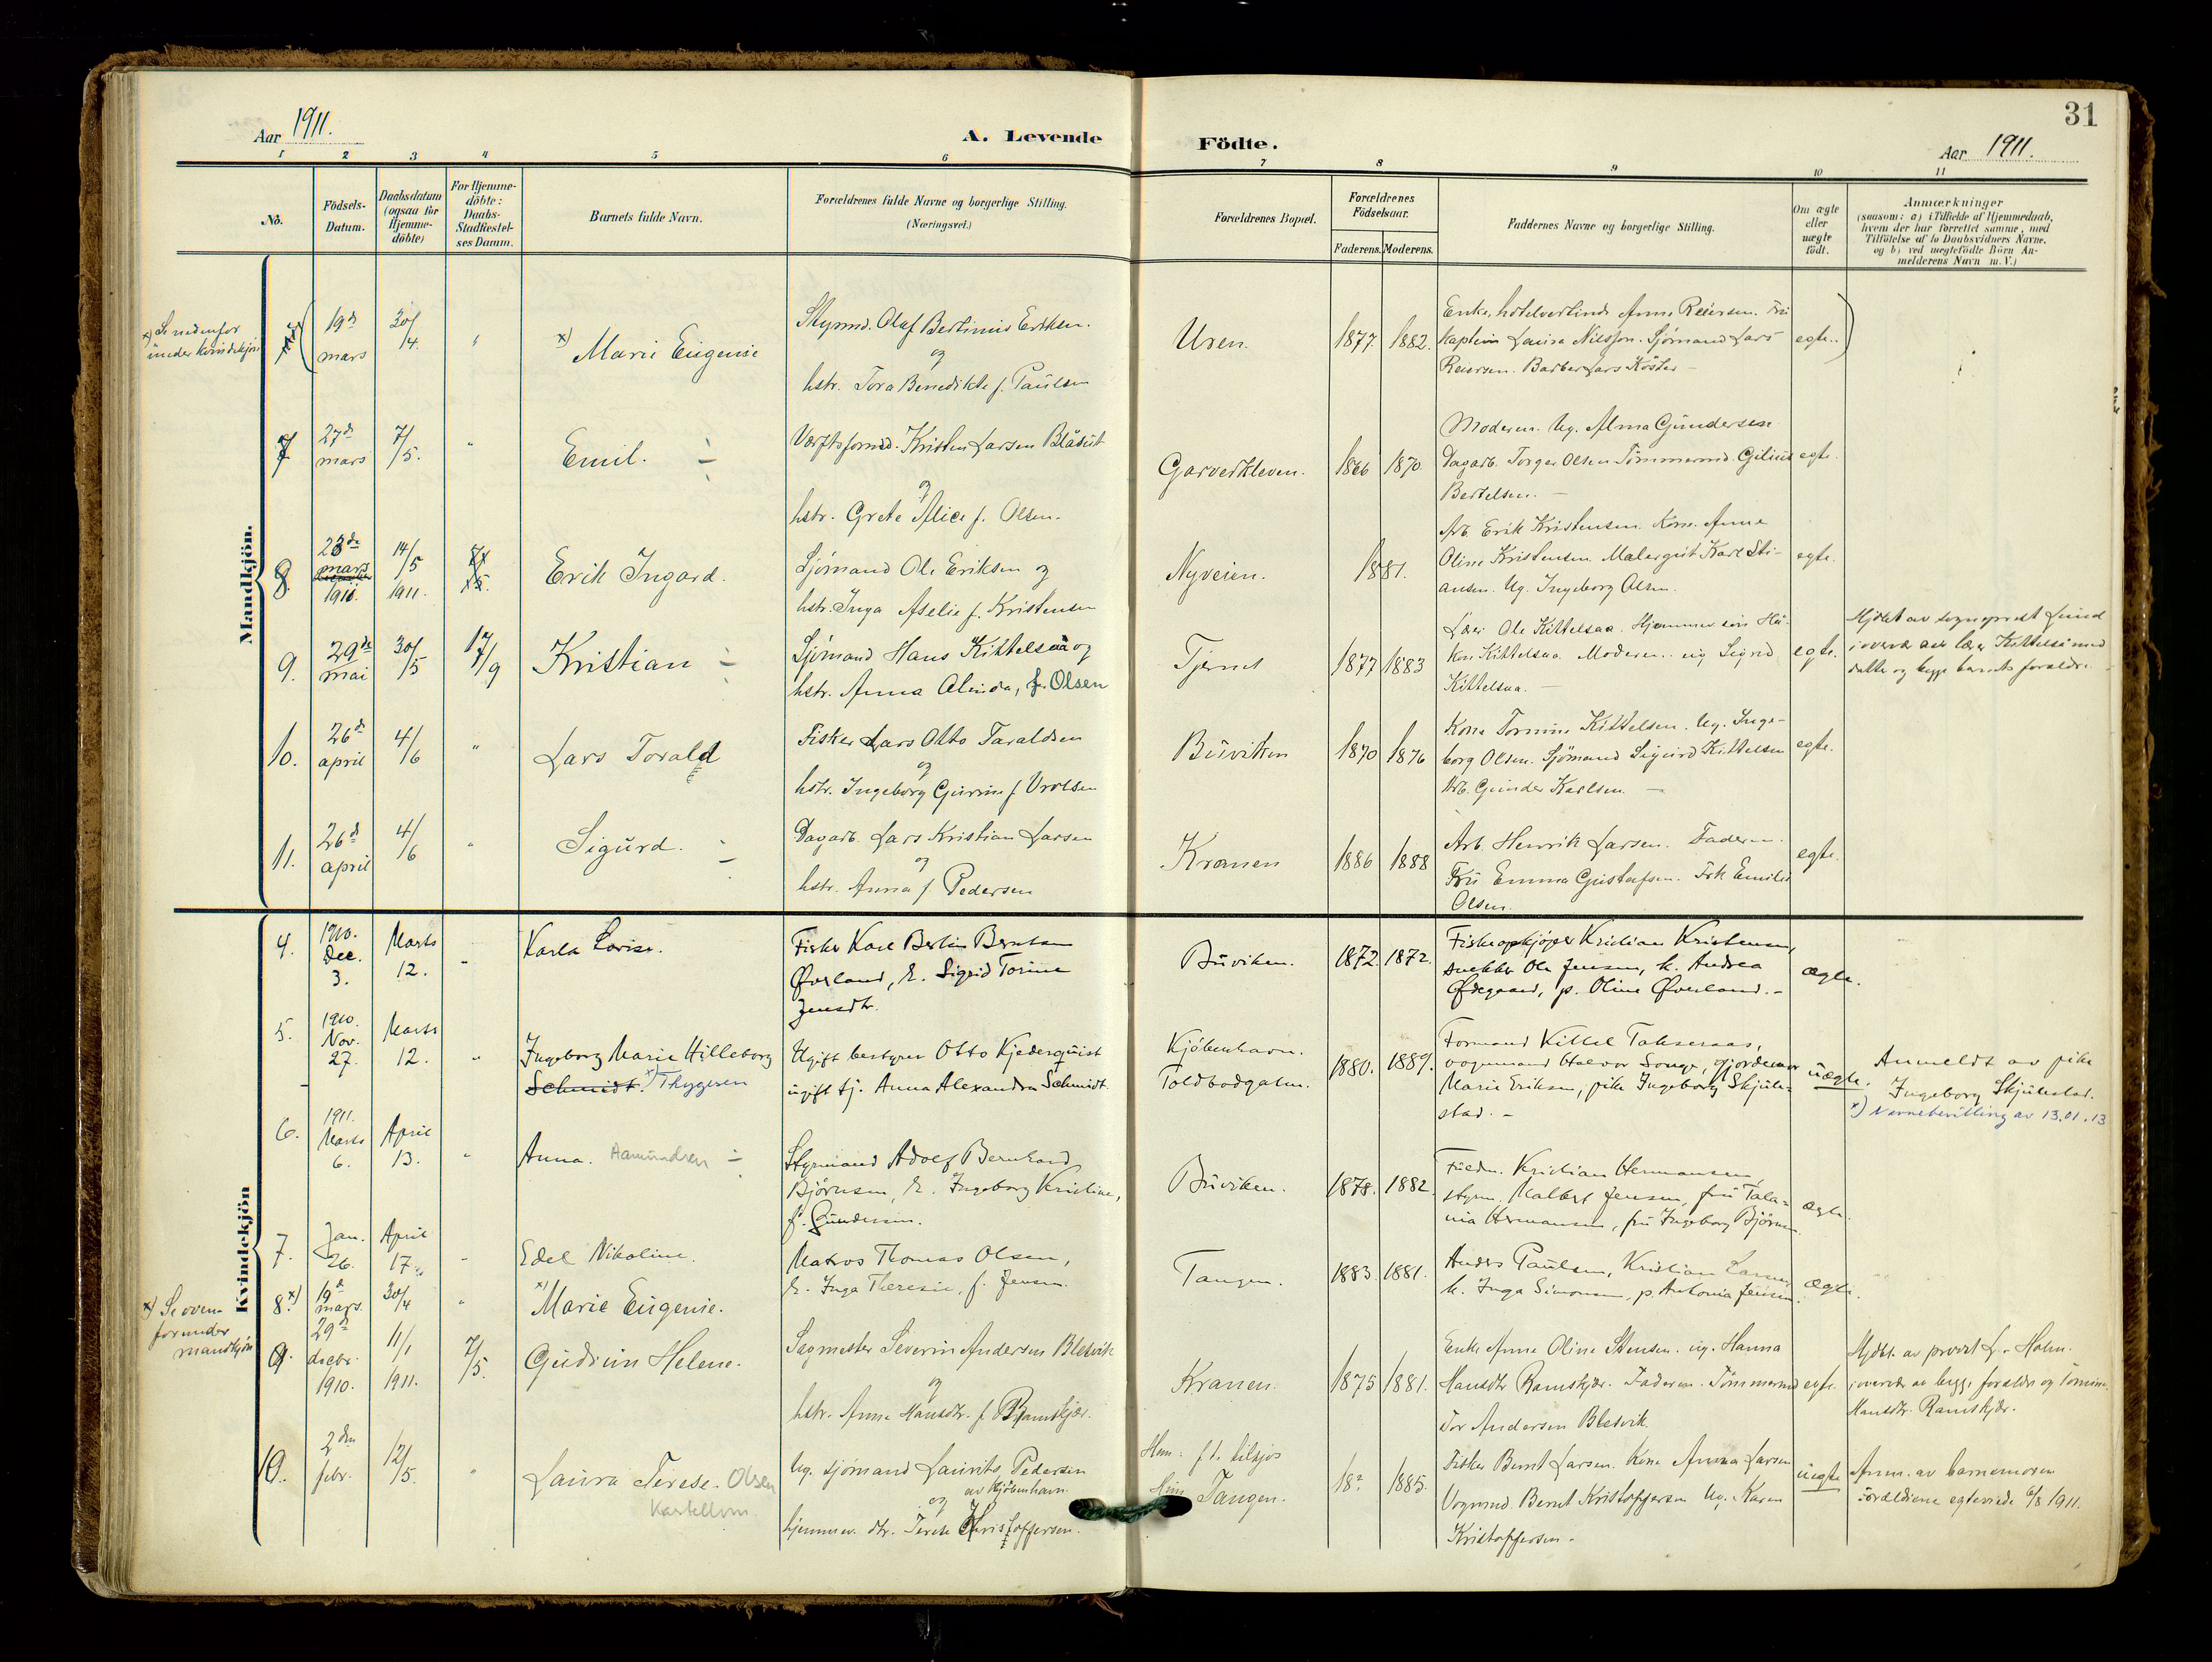 31
Aar 1911.
A. Levende
Födte.
Aar 1911.
1 2 3 4 5 6 7 8 9 10 11
No.
Födsels-
Datum.
Daabsdatum
(ogsaa for
Hjemme-
döbte)
For Hjemme-
döbte:
Daabs-
Stadfæstel-
ses Datum.
Barnets fulde Navn.
Forældrenes fulde Navne og borgerlige Stilling.
(Næringsvei.)
Forældrenes Bopæl.
Forældrenes
Födselsaar.
Faderens. Moderens.
Faddernes Navne og borgerlige Stilling.
Om ægte
eller
uægte
födt.
Anmærkninger
(saasom: a) i Tilfælde af Hjemmedaab,
hvem der har forrettet samme, med
Tilföielse af to Daabsvidners Navne,
og b) ved uægtefödte Börn An-
melderens Navn m. V.)
Mandkjön.
x) Se nedenfor
under kvindekjön
19d
mars
30/4.
x) Marie Eugenie
Styrmd. Olaf Bertinius Eriksen.
og
hstr. Tora Benedikte f. Paulsen
Uren.
1877. 1882.
Enke, hotelvertinde Anne Reiersen. Fru
kaptein Laura Nilsson. Sjømand Lars
Reiersen. Barber Lars Köster -
egte.
7
27d
mars
7/5.
Emil.
Værftsformd. Kristen Larsen Blåsut
og
hstr. Grete Alice f. Olsen.
Garverkleven.
1866 1870
Moderen. Ug. Alma Gundersen
Dagarb. Torger Olsen Tömmermd. Gilius
Bertelsen. -
egte.
8.
23de
mars
1911.
14/5
1911.
Erik Ingard.
Sjömand Ole Eriksen og
hstr. Inga Aselie f. Kristensen
Nyveien.
1881.
Arb. Erik Kristensen. Kone Anne
Oline Kristensen. Malergut Karl Sti-
ansen. Ug. Ingeborg Olsen.
egte.
9.
29de
mai
30/5
17/9
Kristian
Sjömand Hans Kittelsaa og
hstr. Anna Alinda, f. Olsen
Tjenna
1877 1883
Lærer Ole Kittelsaa. Hjemmev. søn Hå-
kon Kittelsaa. Moderen. ug Sigrid
Kittelsaa. -
egte.
Hjdøbt av sogneprest Lund
i overvær av lærer Kittelså med
datter og begge barnets forældre.
10.
26d
april
4/6
Lars Torald
Fisker Lars Otto Taraldsen
og
hstr. Ingeborg Gurine f Vrolsen
Buviken
1870 1876
Kone Tomine Kittelsen. Ug. Inge-
borg Olsen. Sjömand Sigurd Kittelsen
Arb. Gunder Karlsen. -
egte.
11.
26d
april
4/6
Sigurd.
Dagarb. Lars Kristian Larsen
og
hstr. Anna f Pedersen
Kranen
1886 1888
Arb. Henrik Larsen. Faderen.
Fru Emma Gustafsen. Frk Emilie
Olsen.
egte.
Kvindekjön
4.
1910.
Dec.
3.
Marts
12.
Karla Lovise.
Fisker Karl Bertin Berntsen
Øverland, h. Sigrid Torine
Jensdtr.
Buviken.
1872. 1872.
Fiskeopkjöper Kristian Kristensen,
snekker Ole Jensen, k. Andrea
Ødegaard, p. Oline Øverland. -
ægte.
5.
1910.
Nov.
27.
Marts
12.
Ingeborg Marie Hilleborg
Schmidt. x) Thygesen
Ugift bestyrer Otto Kjederquist
ugift tj. Anna Alexandra Schmidt.
Kjöbenhavn.
Toldbodgaten.
1880. 1889.
Formand Kittel Takseraas,
vognmand Halvor Songe, gjordemor
Marie Eriksen, pike Ingeborg Skjule-
stad. -
uægte.
Anmeldt av pike
Ingeborg Skjulestad.
x) Navnebevilling av 13.01.13
6.
1911.
Marts
6.
April
13.
Anna. Aamundsen
Styrmand Adolf Bernhard
Björnsen, h. Ingeborg Kristine,
f. Gundersen.
Buviken.
1878. 1882.
Kristian Hermansen,
styrm. Malbert Jensen, fru Tale-
nia Hermansen, fru Ingeborg Björnsen
ægte.
7.
Jan.
26.
April
17.
Edel Nikoline.
Matros Thomas Olsen,
h. Inga Theresie, f. Jensen.
Tangen.
1883. 1881.
Anders Paulsen, Kristian Larsen,
k. Inga Simonsen, p. Antonia Jensen.
ægte.
x) Se oven-
for under
mandkjön
8.x)
19d
mars.
30/4
x) Marie Eugenie.
9.
29d
decbr.
1910.
11/1
1911.
7/5.
Gudrun Helene.
Sagmester Severin Andersen Blesvik
og
hstr. Anne Hansdtr. f Ramskjær.
Kranen.
1875 1881.
Enke Anne Oline Stensen. ug. Hanna
Hansdtr Ramskjær. Faderen. Tömmermd
Tor Andersen Blesvik.
egte.
Hjdbt. av provst L. Holm.
i overvær av begge forældre og Tomine
Hansdtr. Ramskjær.
10.
2den
febr.
12/5.
Laura Terese. Olsen
Kastellvn.
Ug. sjömand Laurits Pedersen
av Kjöbenhavn.
og
hjemmev. dtr. Terese Kristoffersen.
Han: f. t. tilsjøs
Hun Tangen.
18? 1885.
Fisker Bernt Larsen. Kone Anna Larsen
Vognmd. Bernt Kristoffersen Ug. Karen
Kristoffersen -
uegte
Anm. av barnemoren
Forældrene egteviede 6/8 1911.